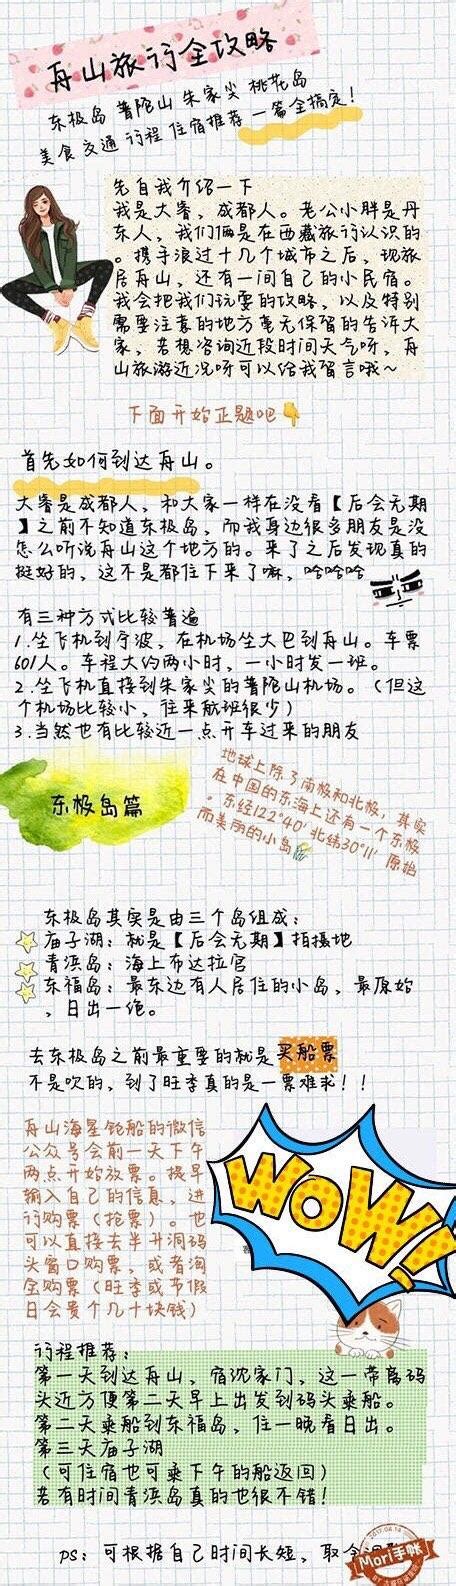 舟山旅行全攻略
东极岛 普陀山 朱家尖 桃花岛
美食 交通 行程 住宿推荐 一篇全搞定!
先自我介绍一下
我是大睿,成都人。老公小胖是丹
东人,我们俩是在西藏旅行认识的
。携手浪过十几个城市之后,现旅
居舟山,还有一间自己的小民宿。
我会把我们玩耍的攻略,以及特别
需要注意的地方毫无保留的告诉大
家,若想咨询近段时间天气呀,舟
山旅游近况呀可以给我留言哦~
下面开始正题吧
首先如何到达舟山。
大睿是成都人,和大家一样在没看【后会无期
】之前不知道东极岛,而我身边很多朋友是没
怎么听说舟山这个地方的。来了之后发现真的
挺好的,这不是都住下来了嘛,哈哈哈
有三种方式比较普遍
1.坐飞机到宁波,在机场坐大巴到舟山。车票
60/人。车程大约两小时,一小时发一班。
2.坐飞机直接到朱家尖的普陀山机场。(但这
个机场比较小,往来航班很少)
3.当然也有比较近一点开车过来的朋友
东极岛篇
地球上除了南极和北极,其实
在中国的东海上还有一个东极
。东经122°40′北纬30°11′原始
而美丽的小岛
东极岛其实是由三个岛组成:
庙子湖:就是【后会无期】拍摄地
青浜岛:海上布达拉宫
东福岛:最东边有人居住的小岛,最原始
,日出一绝。
去东极岛之前最重要的就是买船票
不是吹的,到了旺季真的是一票难求!!
舟山海星轮船的微信
公众号会前一天下午
两点开始放票。提早
输入自己的信息,进
行购票(抢票)。也
可以直接去半升洞码
头窗口购票,或者淘
宝购票(旺季或节假
日会贵个几十块钱)
WOW!
行程推荐:
第一天到达舟山,宿沈家门,这一带离码
头近方便第二天早上出发到码头乘船。
第二天乘船到东福岛,住一晚看日出。
第三天庙子湖
(可住宿也可乘下午的船返回)
若有时间青浜岛真的也很不错!
PS:可根据自己时间长短,取舍
2017.04.14
Mori手帐